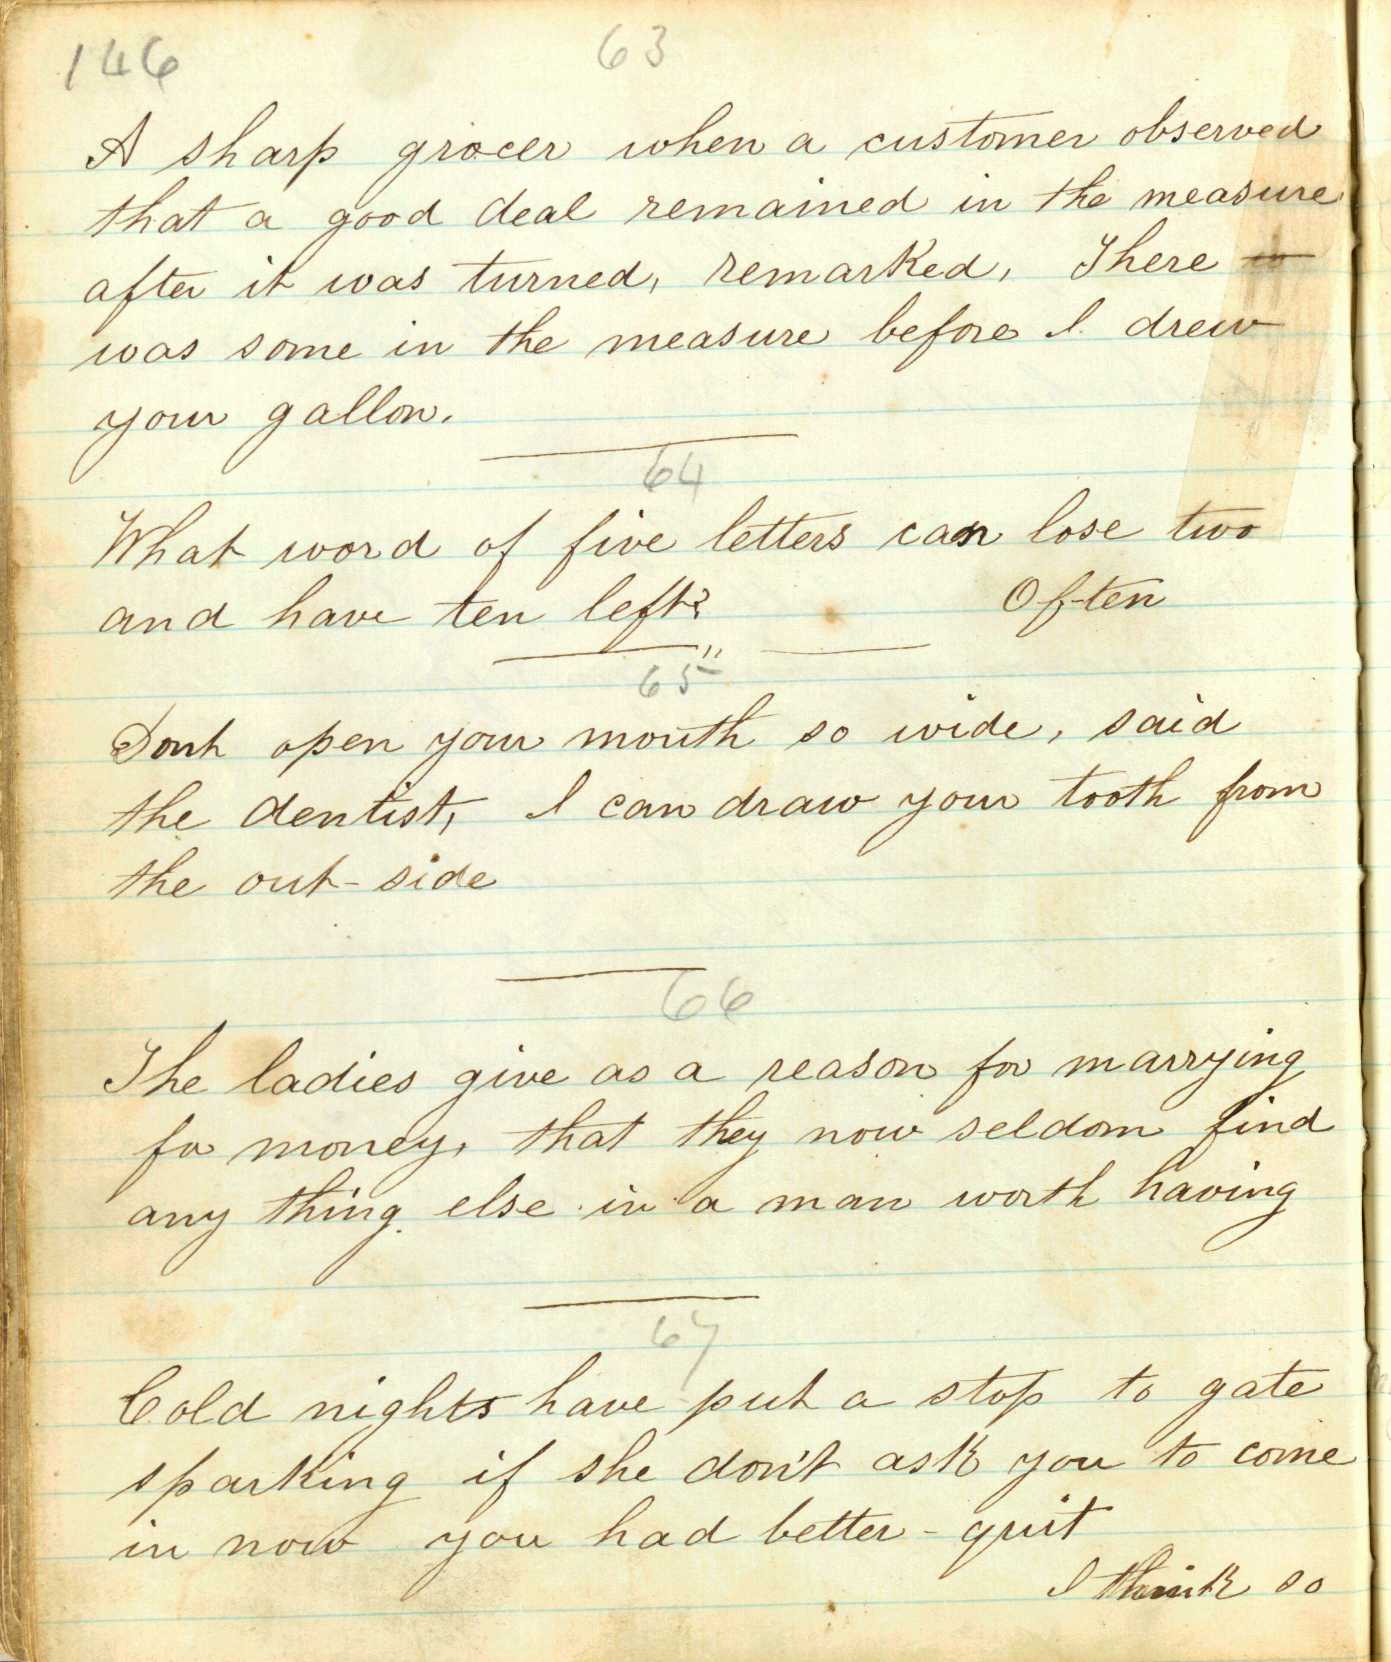 146
63
A sharp grocer when a customer observed
that a good deal remained in the measure
after it was turned, remarked, There
was some in the measure before I drew
your gallon.
64
What word of five letters can lose two
and have ten left?
Often
65
Dont open your mouth so wide, said
the dentist, I can draw your tooth from
the out-side
66
The ladies give as a reason for marrying
for money, that they now seldom find
any thing else in a man worth having
67
Cold nights have put a stop to gate
sparking if she don't ask you to come
in now you had better - quit
I think so